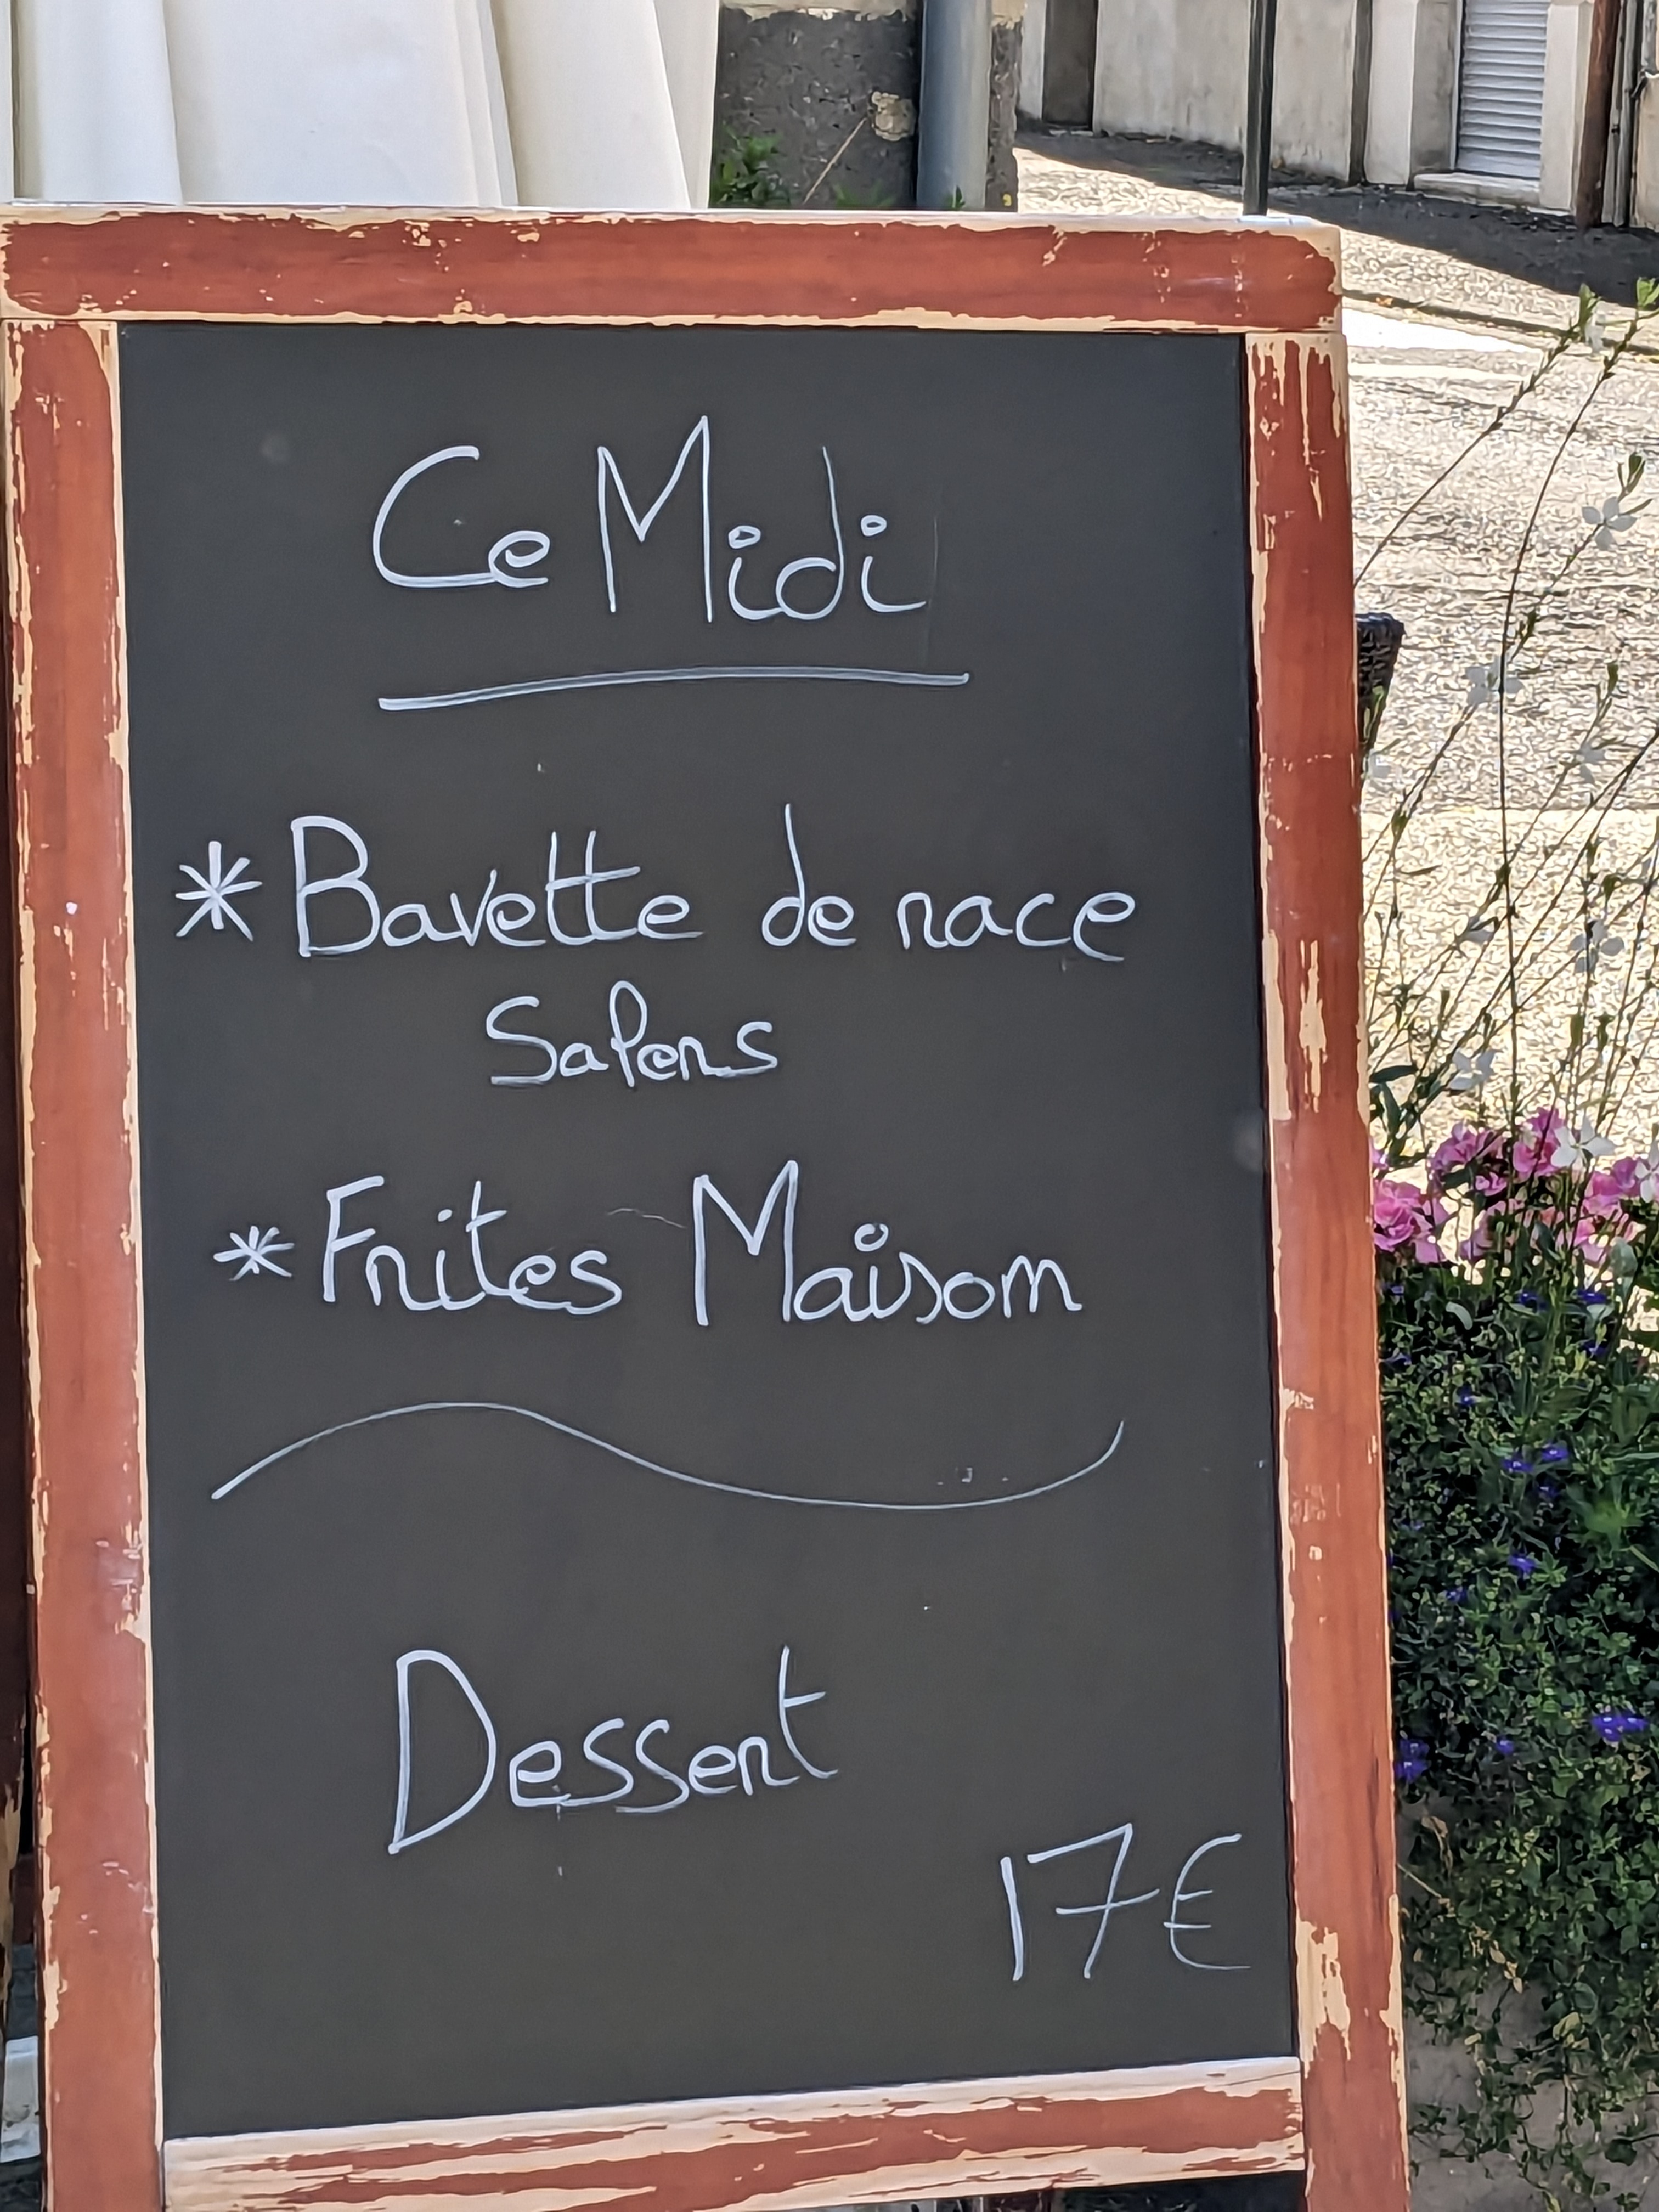 Ce Midi
* Bavette de race
Salers
* Frites Maison
Dessert
17€